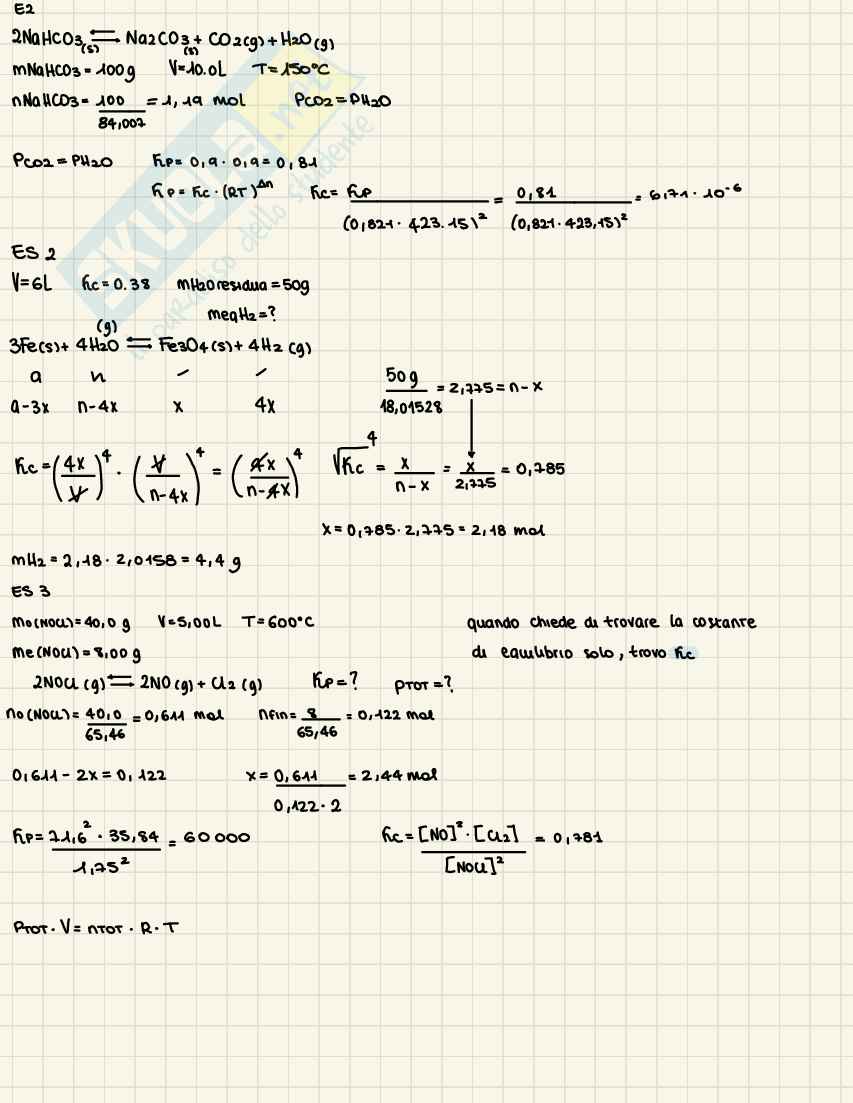 E2
2NaHCO3(s) ⇌ Na2CO3(s) + CO2(g) + H2O(g)
mNaHCO3 = 100g V=10.0L T=150°C
nNaHCO3 = 100/84,007 = 1,19 mol PCO2 = PH2O
PCO2 = PH2O Kp = 0,9 · 0,9 = 0,81
Kp = Kc · (RT)^Δn Kc = Kp/(0,821 · 423.15)² = 0,81/(0,821 · 423,15)² = 6,71 · 10^-6
ES 2
V=6L Kc=0.38 mH2O residua = 50g
meqH2 = ?
3Fe(s) + 4H2O(g) ⇌ Fe3O4(s) + 4H2(g)
a n – –
a-3x n-4x x 4x
50g/18,01528 = 2,775 = n-x
Kc = (4x/V)^4 · (V/n-4x)^4 = (4x/n-4x)^4 4√Kc = x/n-x = x/2,775 = 0,785
x = 0,785 · 2,775 = 2,18 mol
mH2 = 2,18 · 2,0158 = 4,4 g
ES 3
m0(NOCl) = 40,0 g V=5,00L T=600°C
quando chiede di trovare la costante
me(NOCl) = 8,00g
di equilibrio solo, trovo Kc
2NOCl (g) ⇌ 2NO (g) + Cl2 (g) Kp=? PTOT=?
n0(NOCl) = 40,0/65,46 = 0,611 mol nfin = 8/65,46 = 0,122 mol
0,611 - 2x = 0,122 x = 0,611/0,122 · 2 = 2,44 mol
Kp = 71,6² · 35,84/1,75² = 60 000 Kc = [NO]² · [Cl2]/[NOCl]² = 0,781
PTOT · V = nTOT · R · T
SKUOLA.net
il paradiso dello studente